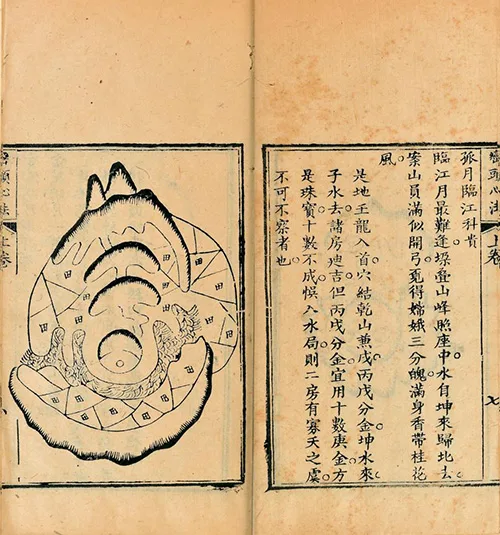 巒頭心法 上卷 七
孤月臨江科貴
臨江月最難逢疊山峰照座中水自坤來歸北去
案山員滿似開弓覔得嫦娥三分魄滿身香帶桂花
風
是地壬龍入首穴結乾山兼戌丙戌分金坤水來
子水去諸房迪吉但丙戌分金宜用十數庚金方
是珠寶十數不成悞入水局則二房有寡夭之虞
不可不察者也
田
田
田
田
田
田
田
田
田
田
田
巒頭心法 上卷